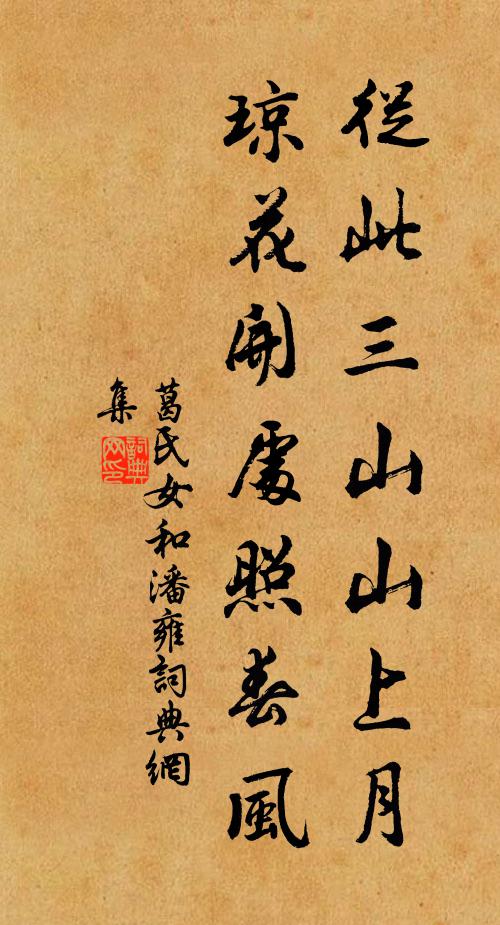 從此三山山上月
琼花開處照春風
葛氏女和潘雍詞典網
集
詞典
网印